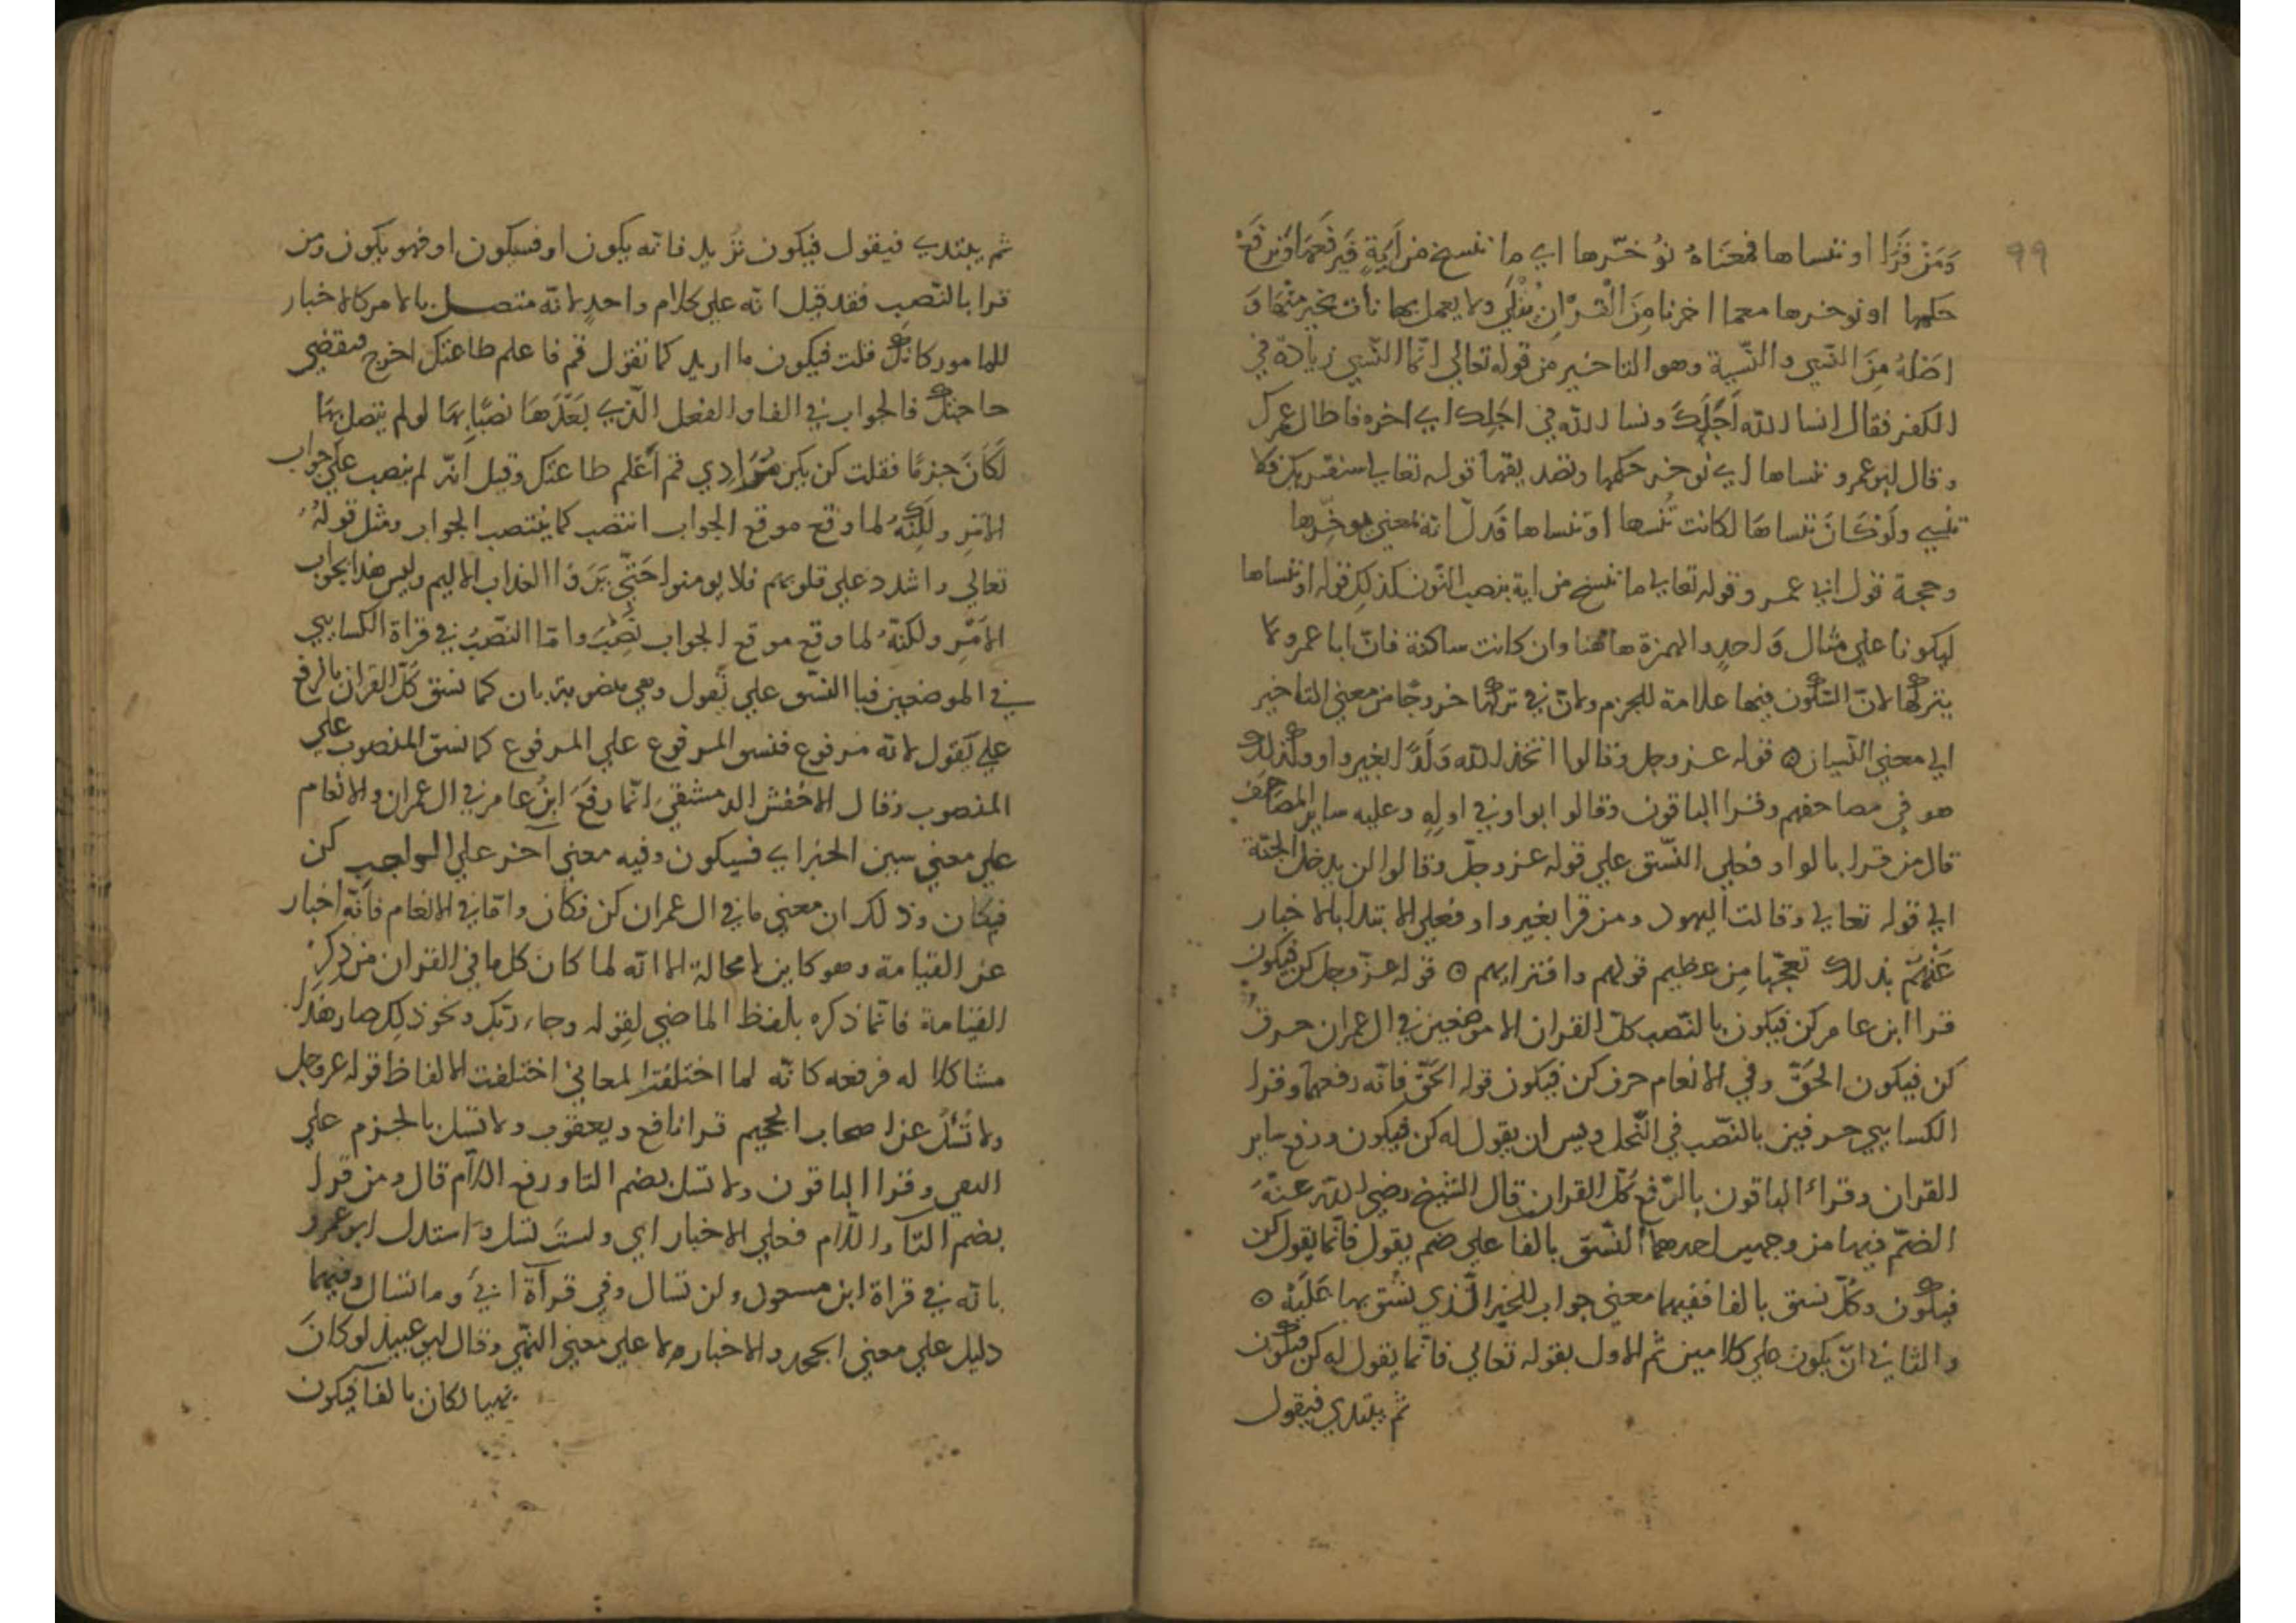 ٩٩
وَمَنْ قَرَا او ننساها فمعناهُ نُؤخّرها اي ما ننسخ من آيةٍ فنرفعها ونرفعْ
حكمها او نوخرها معما اخرنا مِنَ الْقرْانِ يُتْلَي ولا يعمل بها نات بخير منْهَا وَ
اصْلهُ مِنَ النّسي والنّسية وهو التاخير من قوله تعالي انّما النّسي زيادة في
الكفر فقال انسا الله اَجَلَكَ ونسا الله في اجَلِك اي اخره فاطال عمرك
وقال ابو عمرو ننساها اي نوخر حكمها وتصديقها قوله تعالي سنقريك فلا
تنسي ولَوْ كَانَ ننساهَا لكانت نُنسها اوْ ننساها فَدلّ انه بمعني نوخّرها
وحجة قول ابي عمرو قوله تعالي ما ننسخ من اية بنصب النّون فكذلك قوله او ننساها
ليكونا علي مثال وَاحدٍ والهمزة هاهُنا وان كانت ساكنة فانّ ابا عمرو لا
يتركها لانّ السّكون فيها علامة للجزم ولانّ في تركها خروجًا من معني التاخير
الي معني النّسيان ۝ قوله عز وجل وقالوا اتخذ الله وَلَدًا بغير واو وكذلك
هو في مصاحفهم وقرا الباقون وقالوا بواو في اولهِ وعليه ساير المصَاحف
قال من قرا بالواو فعلي النّسق علي قوله عز وجلّ وقالوا لن يدخل الجنّة
الي قوله تعالي وقالت اليهود ومن قرا بغير واو فعلي الابتدا بالاخبار
عَنْهُمْ بذلك تعجّبا مِن عظيم قولهم وافترايهم ۝ قوله عزّ وجل كن فيكون
قرا ابن عامر كن فيكون بالنّصب كلّ القران الا موضعين في ال عمران حرف
كن فيكون الحَقّ وفي الانعام حرف كن فيكون قوله الحَقّ فانّه رفعهما وقرا
الكسايي حرفين بالنّصب في النّحل ويس ان يقول له كن فيكون ورفع ساير
القران وقراء الباقون بالرّفع كُلّ القران قال الشيخ رضي الله عنْهُ
الضمّ فيها من وجهين احدهما النّسق بالفا علي ضم يقول فانّما يقول كن
فيكون وكُلّ نسق بالفا ففيها معني جواب للخبر الّذي نسّق بها عَلَيْهْ ۝
والثاني انّ يكون علي كلامين ثم الاول بقوله تعالي فانّما يقول له كن فيكون
ثم يبتدي فيقول
ثم يبتدي فيقول فيكون نُريد فانّه يكون او فسيكون او فهو يكون ومن
قرا بالنّصب فقد قيل انّه علي كلام واحدٍ لانّه متصل بالامر كالاخبار
للمامور كانّك قلت فيكون ما اريد كما تقول قم فاعلم طاعتك اخرج فنقضي
حاجتك فالجواب في الفا والفعل الّذي بَعْدَهَا نصبًا بهَا لو لم يتصل بهَا
لَكَانَ جزمًا فقلت كن يكن مُرَادِي قم اَعْلم طاعتك وقيل انّه لم ينصب علي جواب
الامْرِ ولكِنّهُ لما وقع موقع الجواب انتصب كما يُنْتصب الجواب ومثل قولهُ
تعالي واشدد علي قلوبهم فلا يومنوا حَتّي يَرَوْا العذاب الاليم وليس هذا بجواب
الامْرِ ولكنّهُ لما وقع موقع الجواب نُصِبَ وامّا النّصْبُ في قراة الكسايي
في الموضعين فبالنسّق علي نَقول وهي منصوبة بان كما نسق كُلّ القران بالرفع
علي يَقول لانّه مرفوع فنسق المرفوع علي المرفوع كما نسق المنصوب علي
المنصوب وقال الاخفش الدمشقي انّما رفعَ ابنُ عامر في ال عمران والانعام
علي معني سين الخبر اي فسيكون وفيه معني آخر علي الواجب كن
فيكان وذلك ان معني ما في ال عمران كن فكان وامّا في الانعام فانّه اخبار
عن القيامة وهو كاين لا محالة الا انّه لما كان كل ما في القران من ذكرِ
القيامة فانّما ذكره بلفظ الماضي لقوله وجاء ربّك ونحو ذلك صار هذا
مشاكلا له فرفعه كانّه لما اختلفت المعاني اختلفت الالفاظ قوله عز وجل
ولا تُسْلُ عن اصحاب الجحيم قرا نافع ويعقوب ولا تسل بالجزم علي
النهي وقرا الباقون ولا تسل بضم التا ورفع اللّام قال ومن قرا
بضم التآ واللّام فعلي الاخبار اي ولستَ تسل وَاستدل ابو عمرو
بانّه في قراة ابن مسعود ولن تسال وفي قرآة ابيّ وما تسال وفيهما
دليل علي معني الجحد والاخبار ولا علي معني النهّي وقال ابو عبيد لو كانَ
نهيا لكان بالفا فيكون